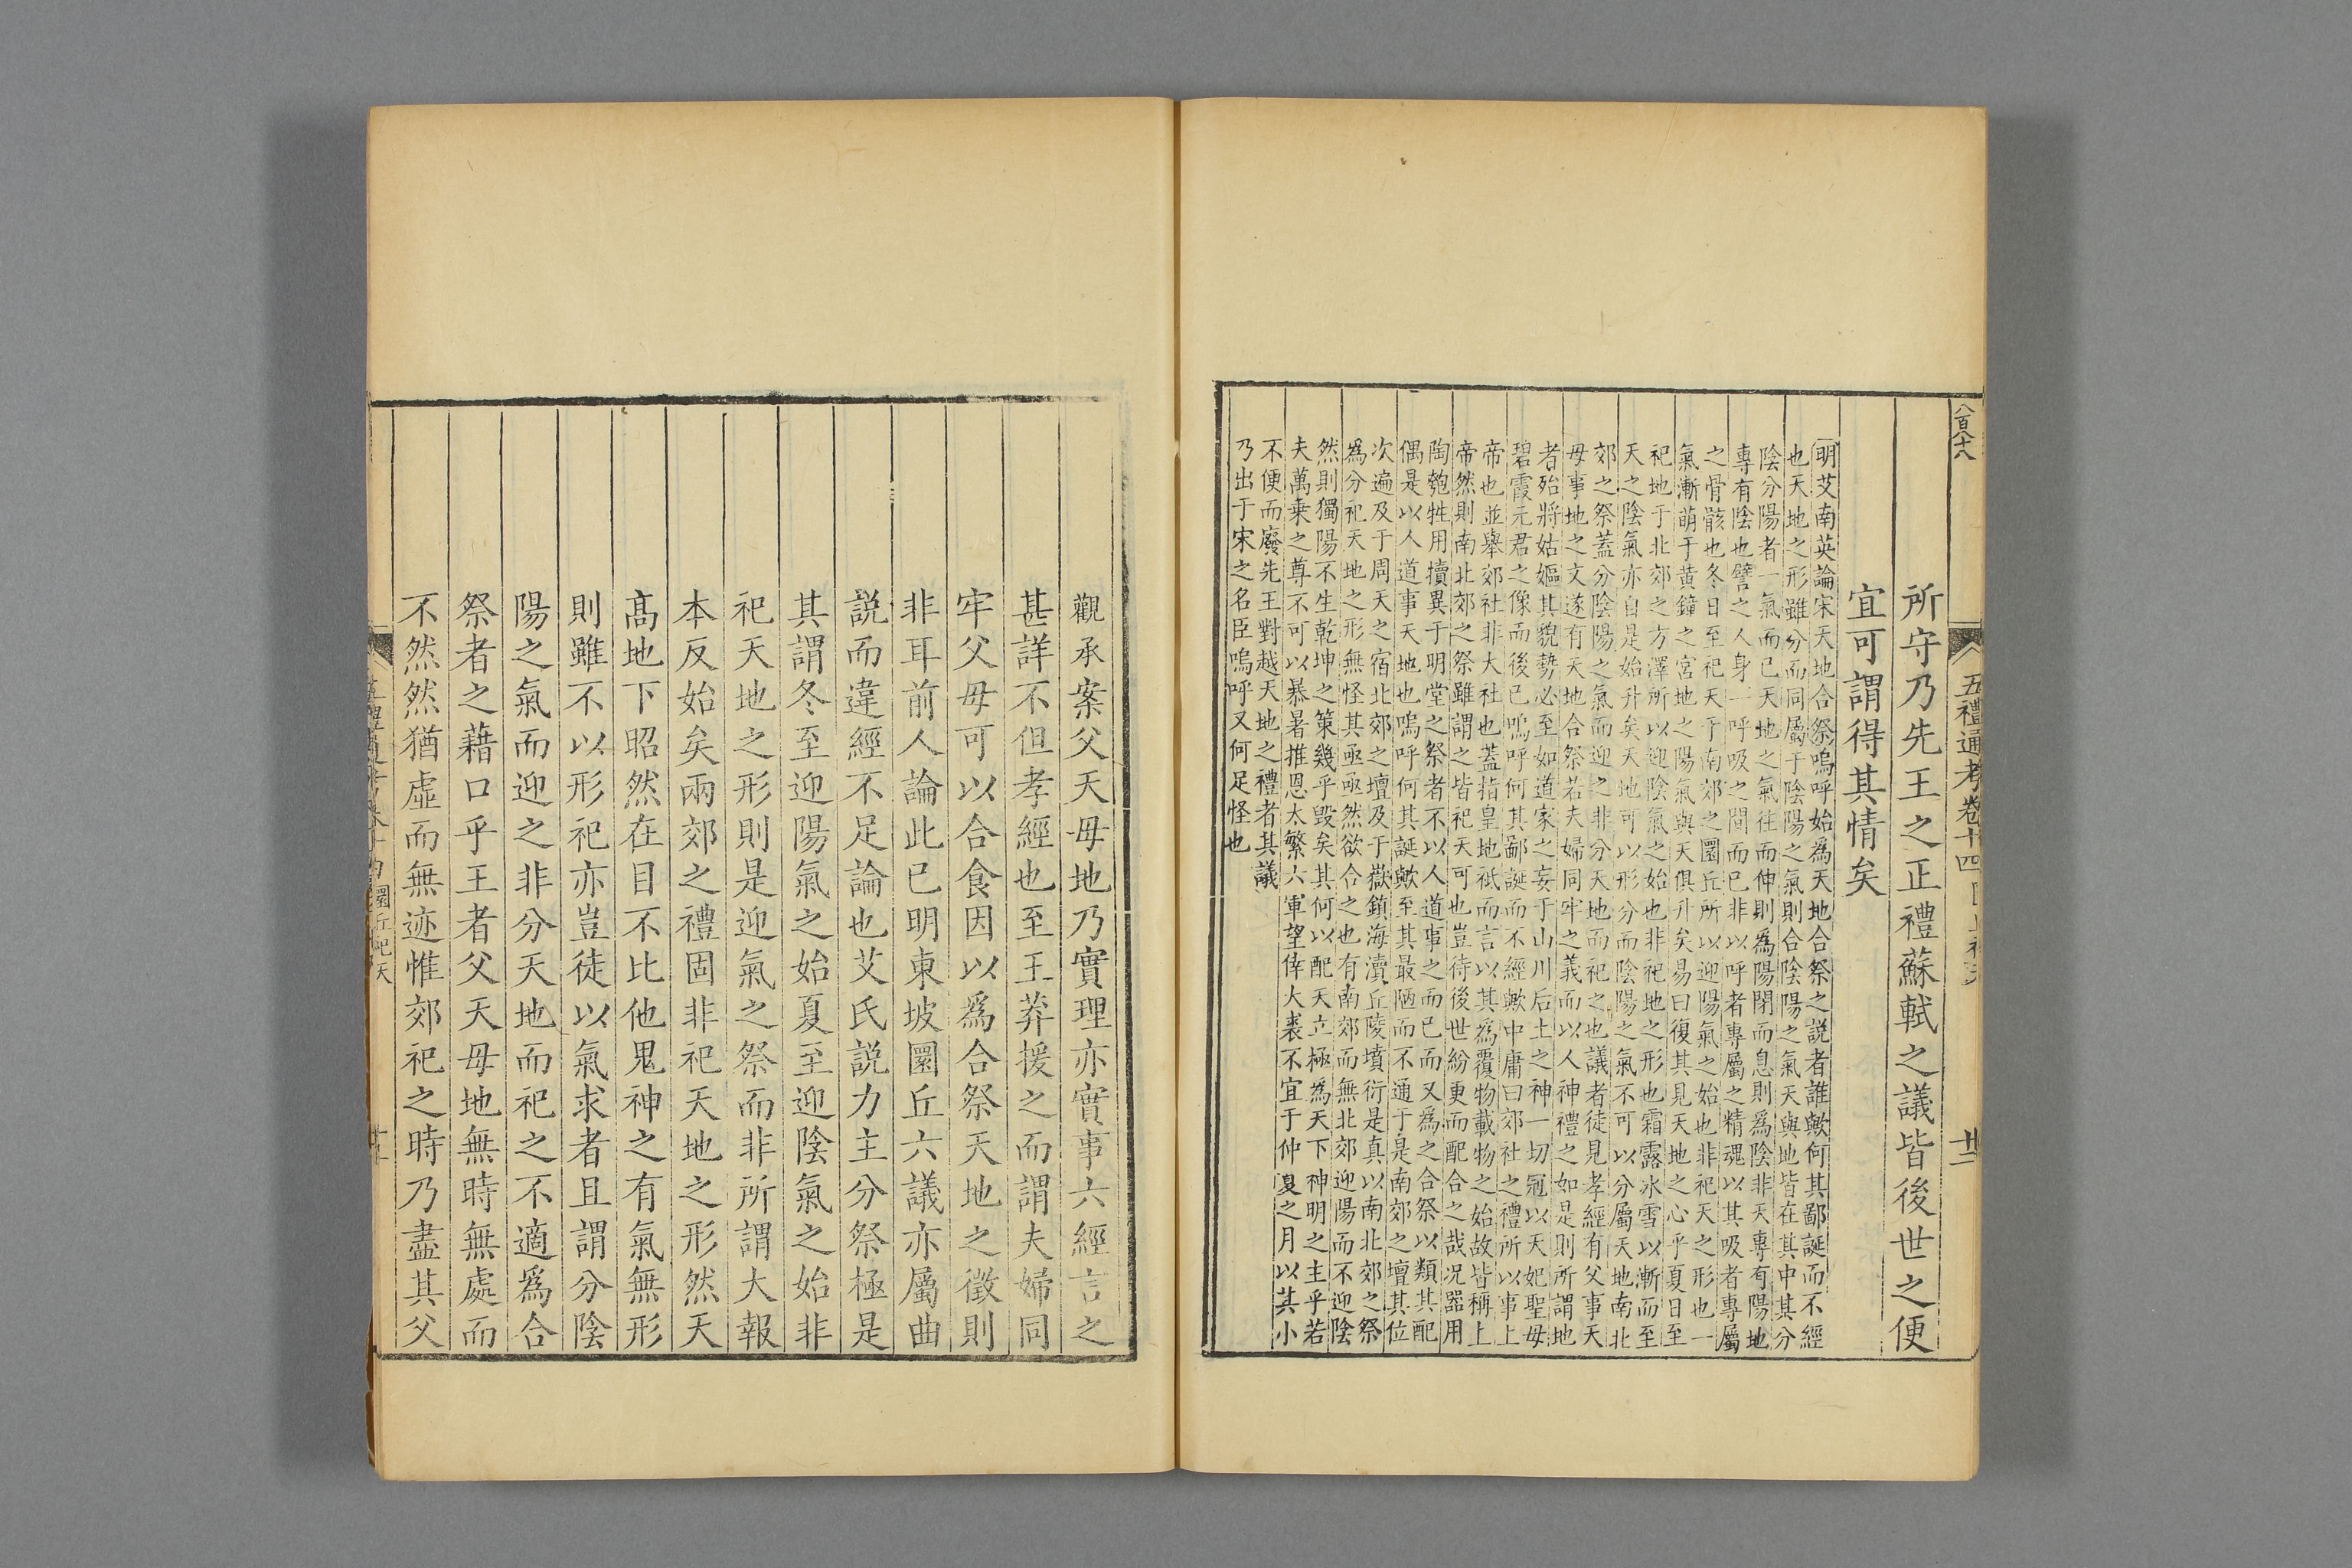 八百六十八
五禮通考卷十四
廿二
所守乃先王之正禮蘇軾之議皆後世之便
宜可謂得其情矣
明艾南英論宋天地合祭嗚呼始為天地合祭之説者誰歟何其鄙誕而不經
也天地之形雖分而同屬于陰陽之氣則合陰陽之氣天與地皆在其中其分
陰分陽者一氣而已天地之氣往而伸則為陽閉而息則為陰非天專有陽地
專有陰也譬之人身一呼吸之間而已非以呼者專屬之精魂以其吸者專屬
之骨骸也冬日至祀天于南郊之圜丘所以迎陽氣之始也非祀天之形也一
氣漸萌于黃鐘之宮地之陽氣與天俱升矣易曰復其見天地之心乎夏日至
祀地于北郊之方澤所以迎陰氣之始也非祀地之形也霜露冰雪以漸而至
天之陰氣亦自是始升矣天地可以形分而陰陽之氣不可以分屬天地南北
郊之祭蓋分陰陽之氣而迎之非分天地而祀之也議者徒見孝經有父事天
母事地之文遂有天地合祭若夫婦同牢之義而以人神禮之如是則所謂地
者殆將姑嫗其貌勢必至如道家之妄于山川后土之神一切冠以天妃聖母
碧霞元君之像而後已嗚呼何其鄙誕而不經歟中庸曰郊社之禮所以事上
帝也並舉郊社非大社也蓋指皇地祇而言以其為覆物載物之始故皆稱上
帝然則南北郊之祭雖謂之皆祀天可也豈待後世紛更而配合之哉況器用
陶匏牲用犢異于明堂之祭者不以人道事之而已而又為之合祭以類其配
偶是以人道事天地也嗚呼何其誕歟至其最陋而不通于是南郊之壇其位
次遍及于周天之宿北郊之壇及于嶽鎮海瀆丘陵墳衍是真以南北郊之祭
為分祀天地之形無怪其亟亟然欲合之也有南郊而無北郊迎陽而不迎陰
然則獨陽不生乾坤之策幾乎毀矣其何以配天立極為天下神明之主乎若
夫萬乘之尊不可以暴暑推恩太繁六軍望倖大裘不宜于仲夏之月以其小
不便而廢先王對越天地之禮者其議
乃出于宋之名臣嗚呼又何足怪也
觀承案父天母地乃實理亦實事六經言之
甚詳不但孝經也至王莽援之而謂夫婦同
牢父母可以合食因以為合祭天地之徵則
非耳前人論此已明東坡圜丘六議亦屬曲
説而違經不足論也艾氏説力主分祭極是
其謂冬至迎陽氣之始夏至迎陰氣之始非
祀天地之形則是迎氣之祭而非所謂大報
本反始矣兩郊之禮固非祀天地之形然天
高地下昭然在目不比他鬼神之有氣無形
則雖不以形祀亦豈徒以氣求者且謂分陰
陽之氣而迎之非分天地而祀之不適為合
祭者之藉口乎王者父天母地無時無處而
不然然猶虛而無迹惟郊祀之時乃盡其父
圜丘祀天